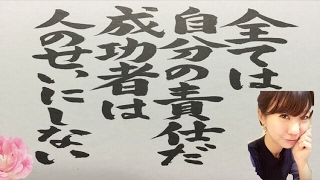 全ては
自分の責任だ
成功者は
人のせいにしない